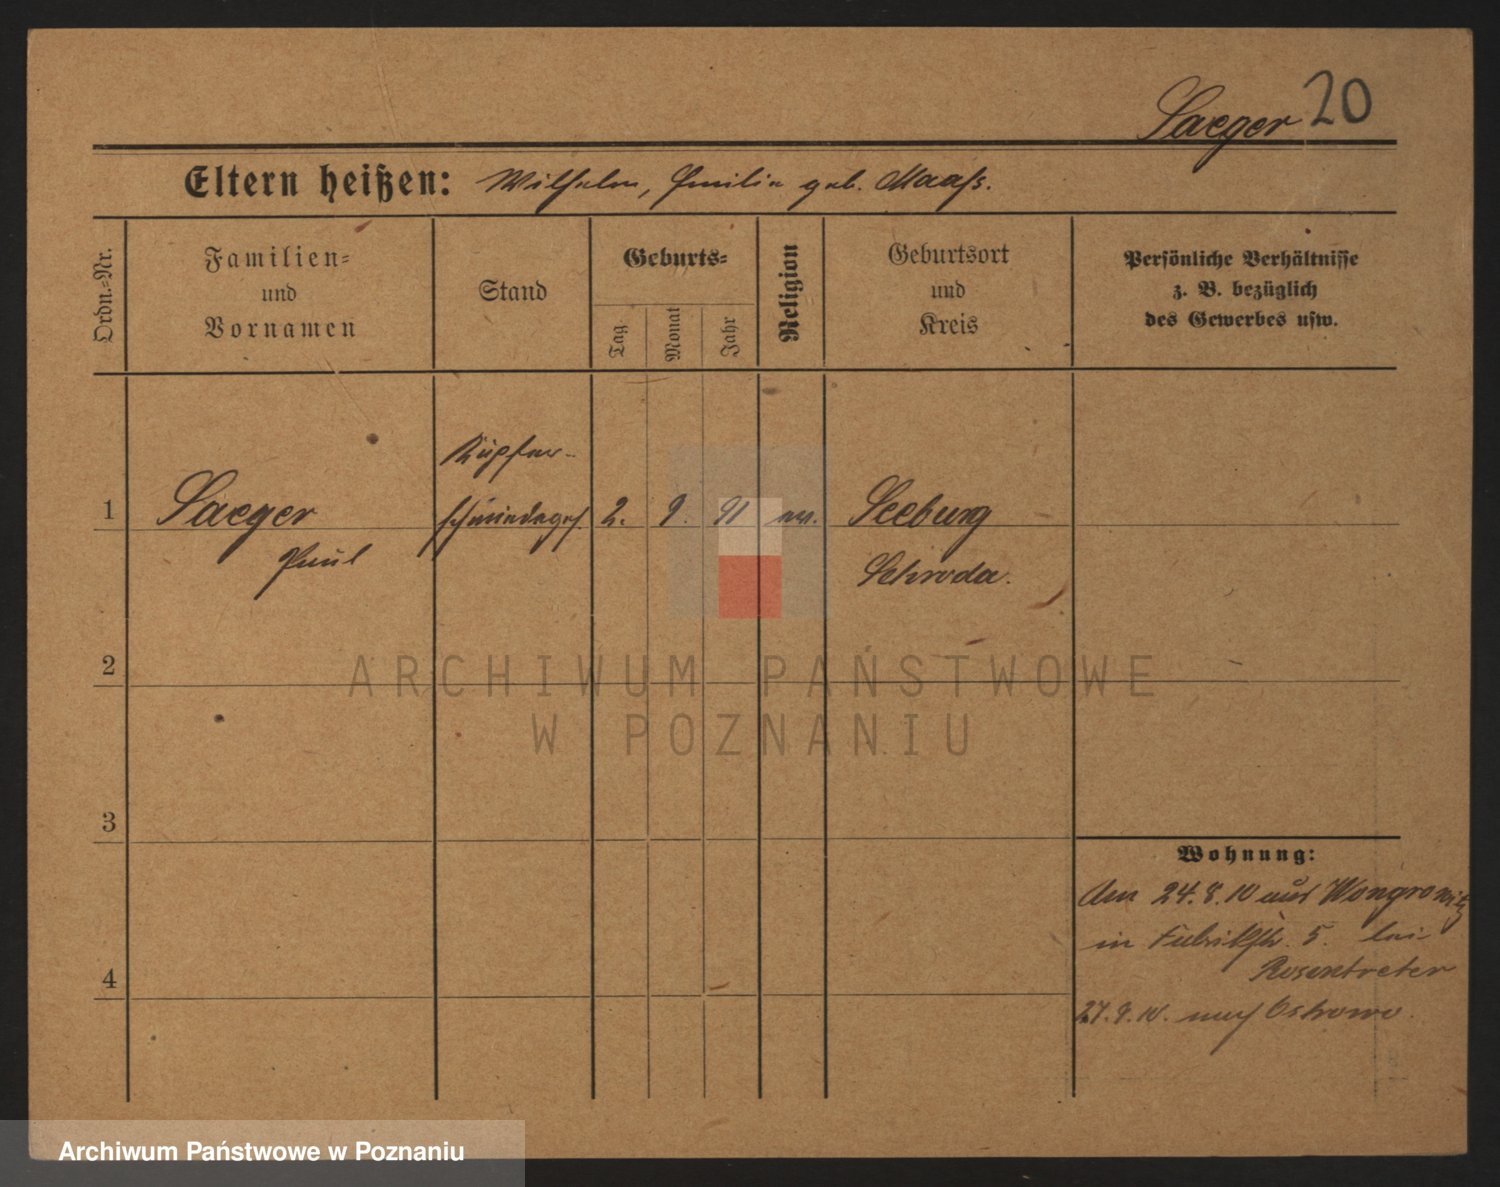 Saeger 20
Eltern heißen: Wilhelm, Emilie geb. Maaß.
Ordn.-Nr.
Familien-
und
Vornamen
Stand
Geburts-
Tag
Monat
Jahr
Religion
Geburtsort
und
Kreis
Persönliche Verhältnisse
z. B. bezüglich
des Gewerbes usw.
Kupfer-
1 Saeger schmiedeges. 2. 9. 91 ev. Seeburg
Paul Schroda.
2
ARCHIWUM PAŃSTWOWE
W POZNANIU
3
Wohnung:
Am 24.8.10 aus Wongrowitz
in Fabrikstr. 5. bei
4 Rosentreter
27.9.10. nach Ostrowo.
Archiwum Państwowe w Poznaniu